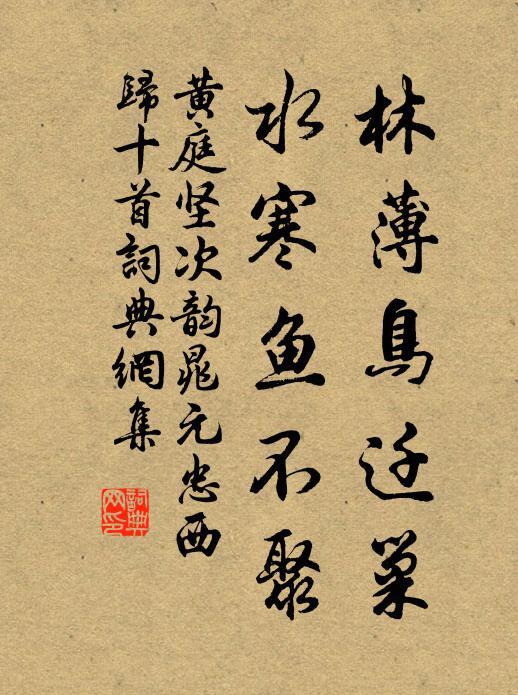 林薄鳥迁巢
水寒鱼不聚
黄庭坚次韵晁元忠西
歸十首詞典網集
詞典网印